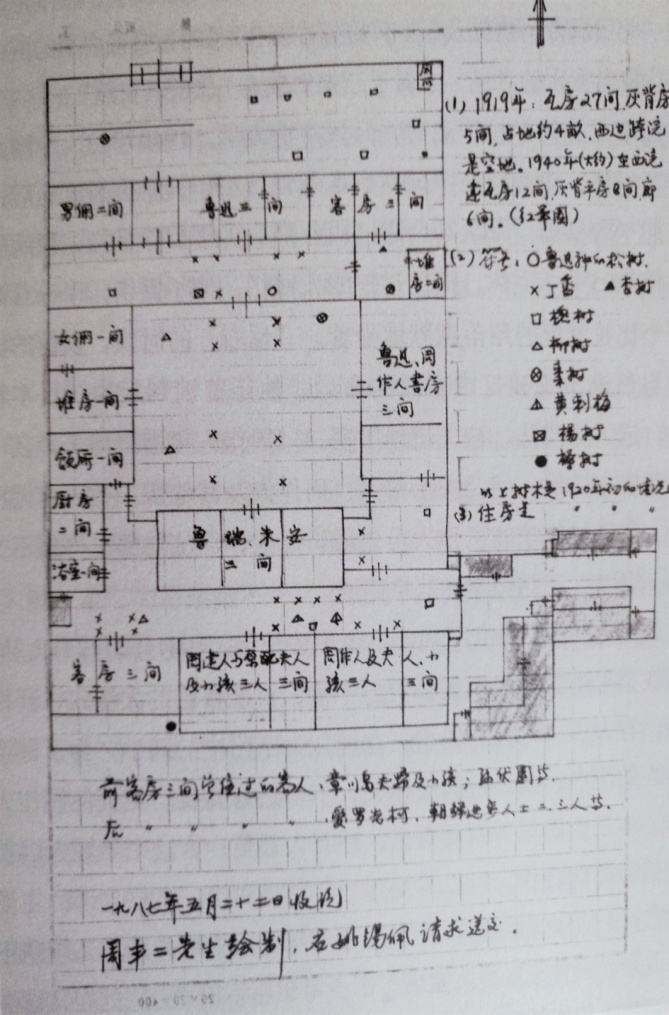 厕所
(1) 1919年：瓦房27间,灰背房
5间,占地约4亩.西边跨院
是空地。1940年(大约)在西院
建瓦房12间,灰背平房8间,廊
6间。(红笔图)
男佣二间
鲁迅三间
客房三间
堆房二间
(2)符号:○鲁迅种的松树.
×丁香 ▲杏树
□槐树
△柳树
枣树
黄刺梅
杨树
●椿树
以上树木是1920年初的情况
(3)住房是 〃 〃 〃
女佣一间
鲁迅、周
作人书房
三间
堆房一间
饭厅一间
厨房
二间
鲁瑞、朱安
三间
浴室一间
客房三间
周建人与原配夫人
及小孩三人 三间
周作人及夫人、小
孩三人 三间
前客房三间曾住过的客人,章川岛夫妇及小孩;孙伏园等.
后 〃 〃 〃 〃 爱罗先珂,朝鲜进步人士二、三人等.
一九八七年五月二十二日收到
周丰二先生绘制,
20×20=400